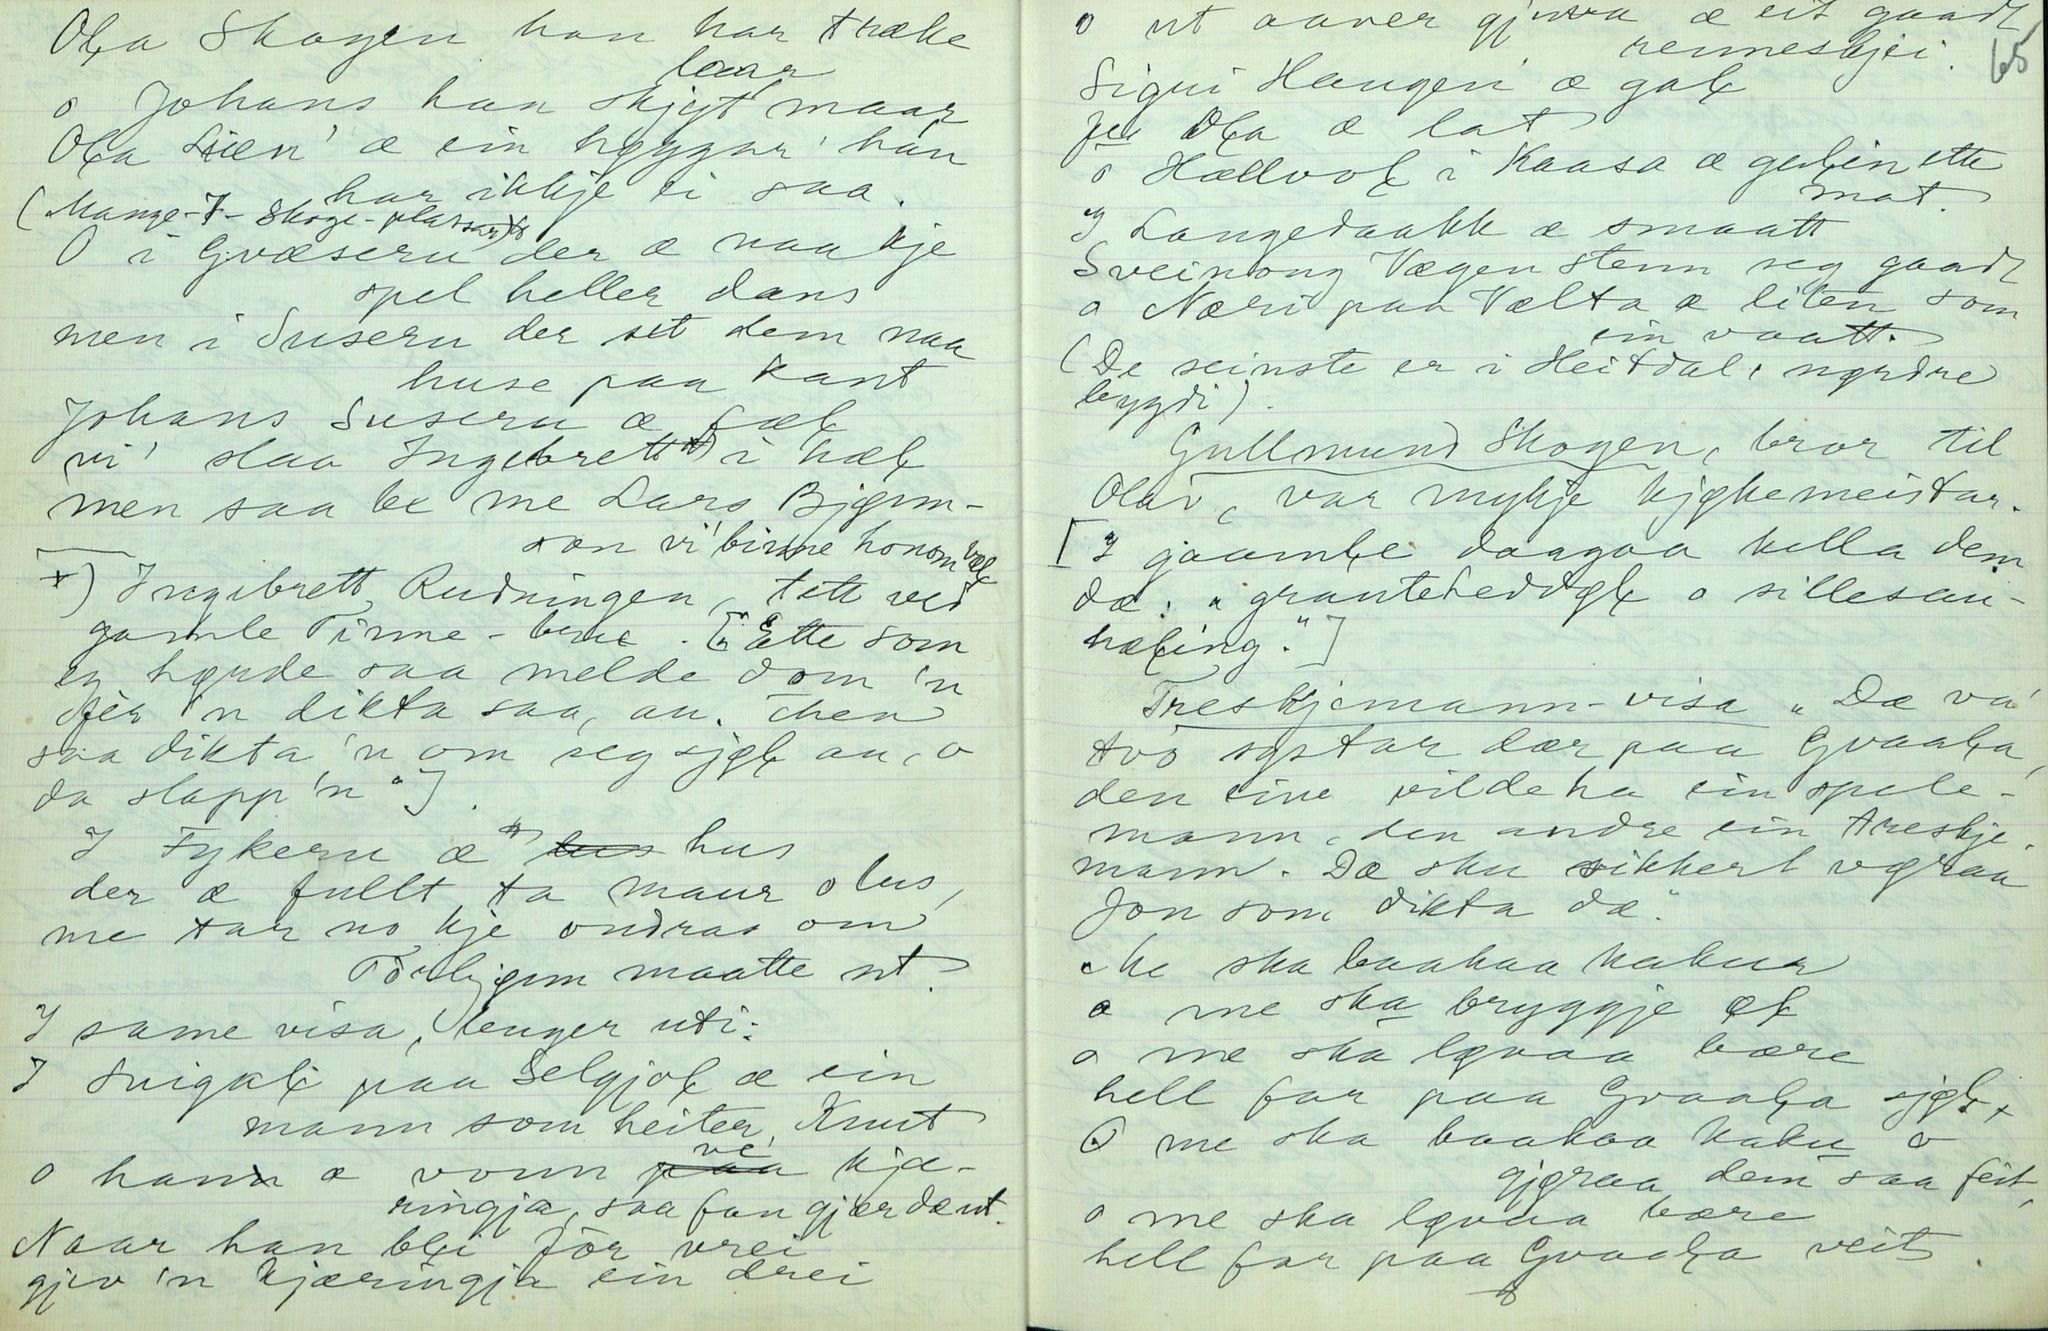 Oła Skogen han har træke
laar
o Johans han skjøt maar
Oła Lien' æ ein høggar' han
har ikkje ei saa.
(Mange-I-Skoge-plassar)
O i Gvæseru der æ naa kje
spel heller dans
men i Suseru der set dem naa
huse paa kant
Johans Suseru æ fæł
vi' slaa Ingebrett x) i hæł
men saa be me Lars Bjønn-
son vi' binne honom væł
x) Ingibrett Rudningen, tett ved
gamle Tinne-brue. ["Ette som
eg høyrde saa melde dom 'n
fer 'n dikta saa, au. Men
saa dikta 'n om seg sjøł au, o
da slapp 'n"].
I Fykeru æ hus
der æ fullt ta maur o lus,
me tar no kje ondras om
Torbjønn maatte ut.
I same visa, lenger uti:
I Svigałi paa Selgjoł æ ein
mann som heiter Knut
o hann æ vonn paa ve kjæ-
ringja, saa fan gjær dæ ut.
Naar han błei før vrei
gjev 'n kjæringja ein drei
o ut aaver gjøva æ eit gaadt
renneskjei.
65
Sigri Haugen' æ gałe
per Oła æ lat
o Hællvoł i Kaasa æ gałin ette
mat.
I Langedaakk æ smaatt
Sveinong Vægen stenn seg gaadt
o Næri paa Vælta æ liten som
ein vaatt.
(De seinste er i Heitdal, nørdre
bygdi).
Gullmund Skogen, bror til
Olav, var mykje kjøkemeistar.
[I gaamłe daagaa kalla dem
dæ: "grautehedtøł o sillesau-
hæling."]
Treskjemann-visa "Dæ va'
tvo systar dær paa Gvaała,
den eine vilde ha ein spele-
mann, den andre ein treskje-
mann. Dæ sku sikkert vøraa
Jon som dikta dæ."
Me ska baakaa kakur
o me ska bryggje øł
o me ska løvaa bære
hell far paa Gvaała sjøł.
O me ska baakaa kaku o
gjøraa dem saa feit,
o me ska løvaa bære
hell far paa Gvaała veit.